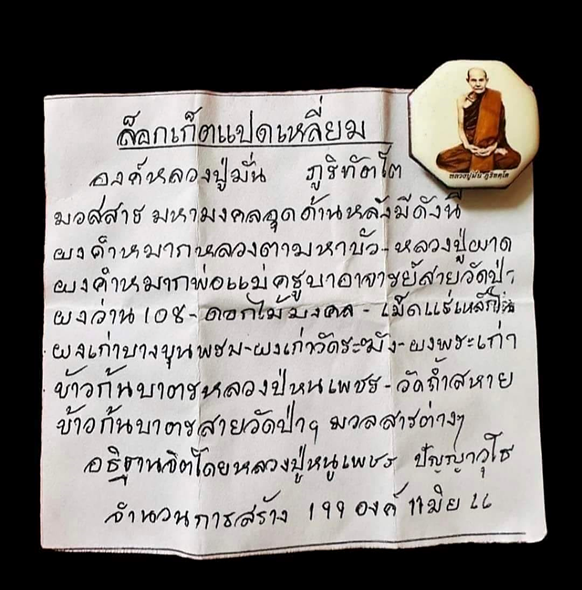 ล็อกเก็ตแปดเหลี่ยม
องค์หลวงปู่มั่น ภูริทัตโต
มวลสาร มหามงคลอุดด้านหลังมีดังนี้
ผงคำหมากหลวงตามหาบัว-หลวงปู่ผาด
ผงคำหมากพ่อแม่ครูบาอาจารย์สายวัดป่า
ผงว่าน 108-ดอกไม้มงคล-เม็ดแร่เหล็ก
ผงเก่าบางขุนพรหม-ผงเก่าวัดระฆัง-ผงพระเก่า
ข้าวก้นบาตรหลวงปู่หนูเพชร-วัดถ้ำสหาย
ข้าวก้นบาตรสายวัดป่าฯ มวลสารต่างๆ
อธิฐานจิตโดยหลวงปู่หนูเพชร ปัญญาวุโธ
จำนวนการสร้าง 199 องค์ 11 มิย 66
หลวงปู่มั่น ภูริทตฺโต